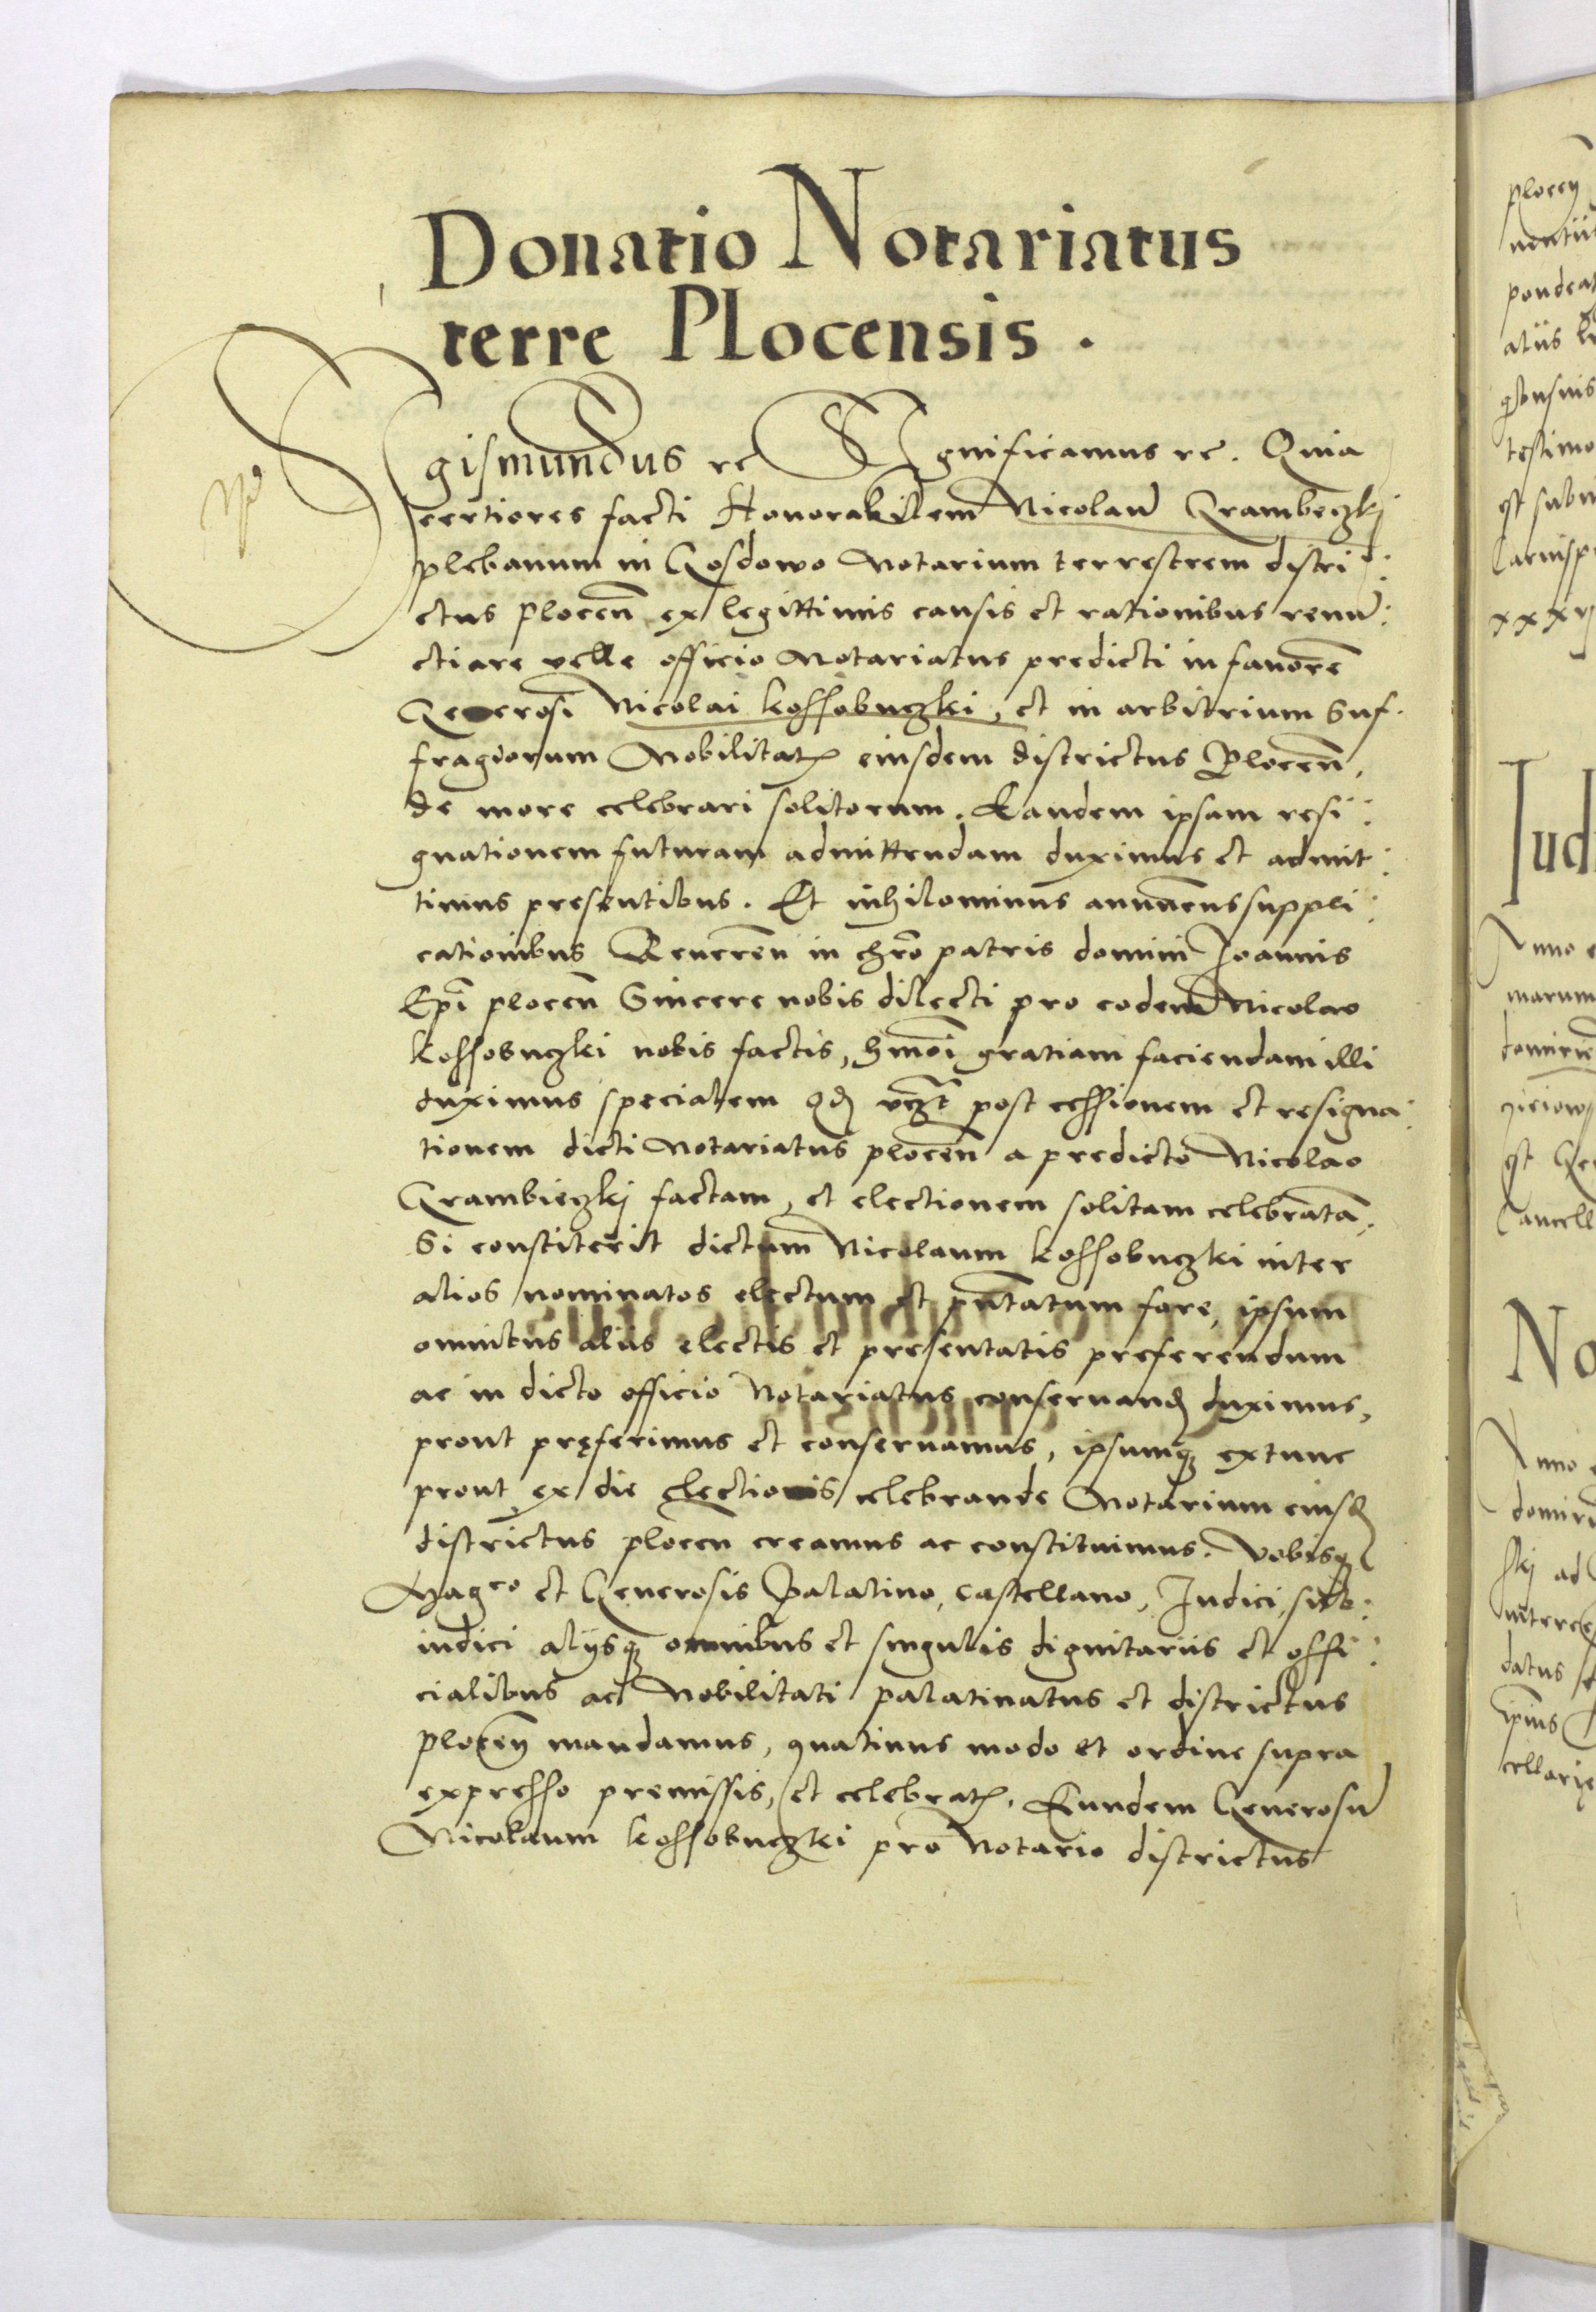 Donatio Notariatus
terre Plocensis .
Sigismundus rc Significamus rc. Quia
certiores facti Honorabilem Nicolaũ Grambeczkj
plebanum in Gosdowo Notarium terrestrem distri :
ctus plocen̄ ex legittimis causis et rationibus renũ :
ctiare velle officio Notariatus predicti in fauorē
Generosi Nicolai kossobuczki, et in arbitrium Suf :
fragiorum Nobilitatꝭ eiusdem districtus Plocen̄,
de more celebrari solitorum. Eandem ipsam resi :
gnationem futuram admittendam duximus et admit :
timus presentibus. Et nihilominus annuens suppli :
cationibus Reueren̄ in chr̄o patris domini Joannis
Ep̄i plocen̄ Sincere nobis dilecti pro eodem Nicolao
kossobuczki nobis factis, hm̄oi gratiam faciendam illi
duximus specialem qđ vcz̄t post cessionem et resigna :
tionem dicti Notariatus plocen̄ a predicto Nicolao
Grambieczkj factam, et electionem solitam celebratā,
Si constiterit dictum Nicolaum kossobuczki inter
alios nominatos electum et pn̄tatum fore, ipsum
omnibus aliis electis et presentatis preferendum
ac in dicto officio Notariatus conseruanđ duximus,
prout pręferimus et conseruamus, ipsumqꝫ extunc
prout ex die electionis celebrande Notarium eiusđ
districtus plocen creamus ac constituimus. Vobisqꝫ
Magco et Generosis Palatino, Castellano, Iudici, sub :
iudici aliisqꝫ omnibus et singulis dignitariis et offi :
cialibus ac Nobilitati palatinatus et districtus
plocen̄ mandamus, quatinus modo et ordine supra
expresso premissis, et celebratꝭ, Eundem Generosũ
Nicolaum kossobuczki pro Notario districtus